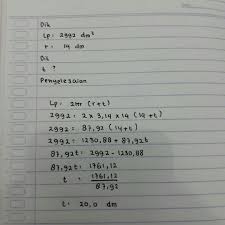 Dik
Lp: 2992 dm²
r: 14 dm
Dit
t ?
Penyelesaian
Lp: 2πr (r+t)
2992: 2 x 3,14 x 14 (14+t)
2992: 87,92 (14+t)
2992: 1230,88 + 87,92t
87,92t: 2992 - 1230,88
87,92t: 1761,12
t : 1761,12
87,92
t: 20,0 dm